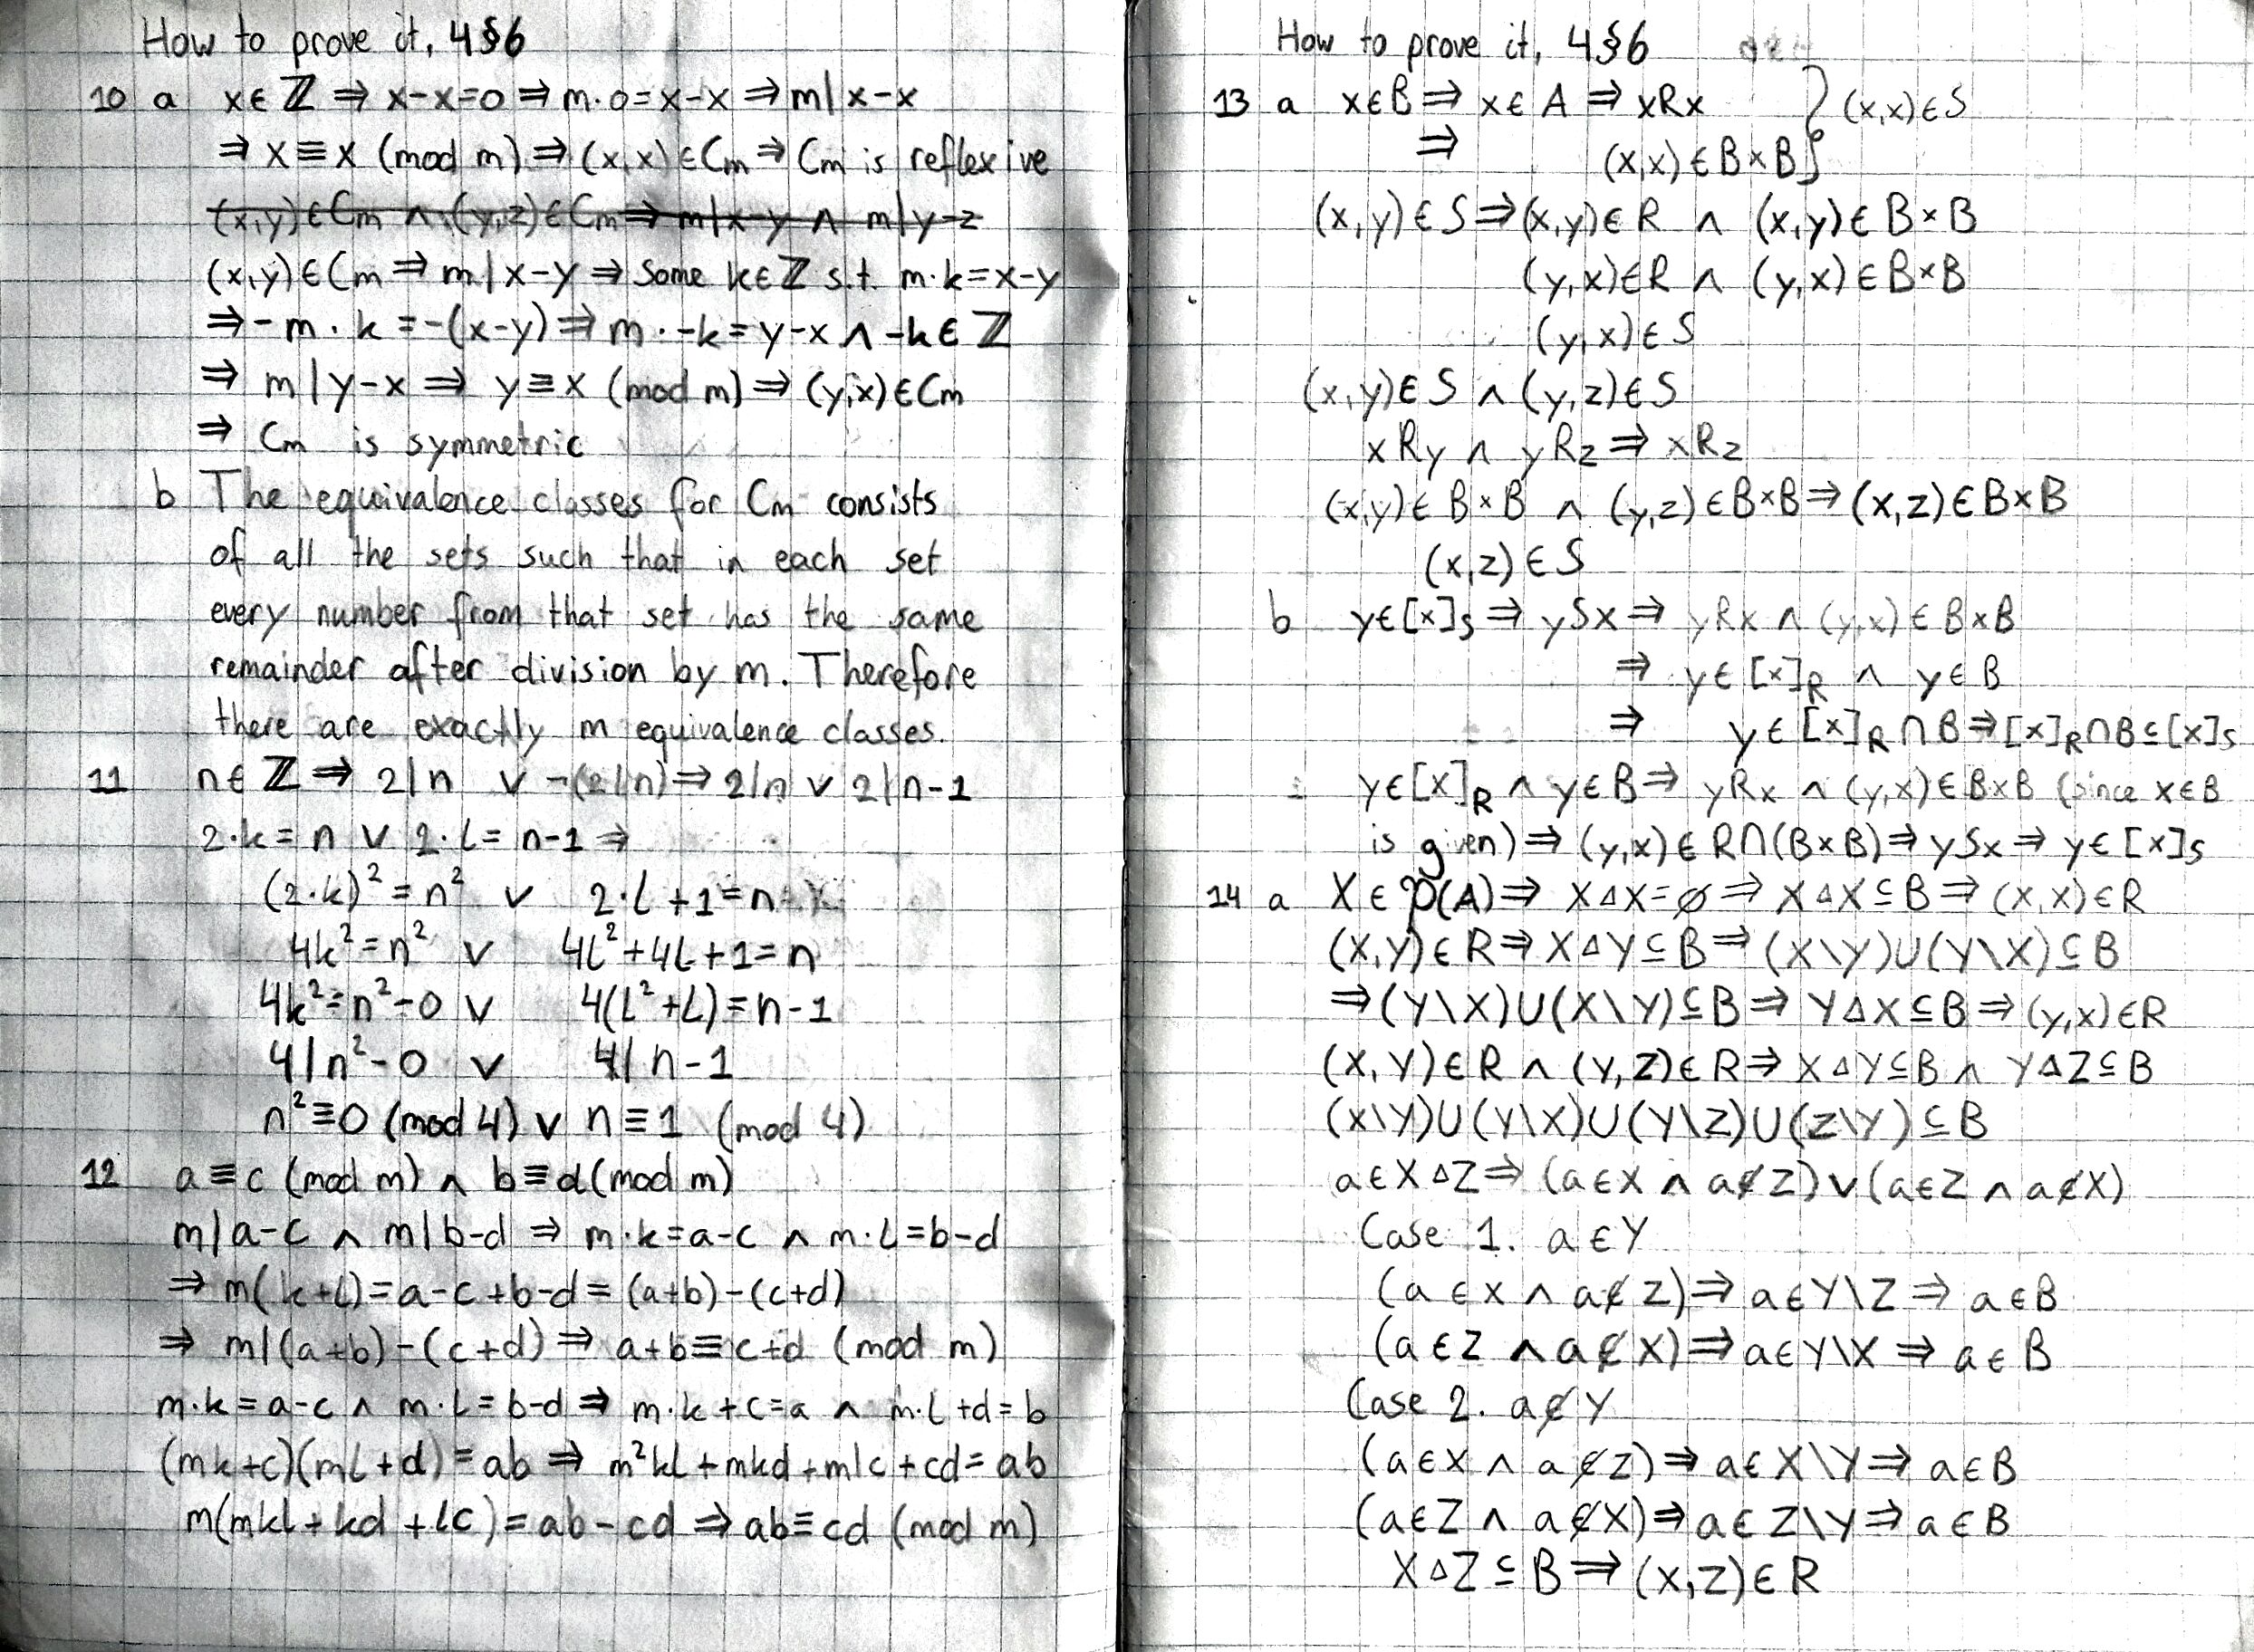 How to prove it, 4§6
10 a x∈ℤ ⇒ x-x=0 ⇒ m·0=x-x ⇒ m|x-x
⇒ x≡x (mod m) ⇒ (x,x)∈Cm ⇒ Cm is reflexive
(x,y)∈Cm ∧ (y,z)∈Cm ⇒ m|x-y ∧ m|y-z
(x,y)∈Cm ⇒ m|x-y ⇒ Some k∈ℤ s.t. m·k=x-y
⇒ -m·k=-(x-y) ⇒ m·-k=y-x ∧ -k∈ℤ
⇒ m|y-x ⇒ y≡x (mod m) ⇒ (y,x)∈Cm
⇒ Cm is symmetric
b The equivalence classes for Cm consists
of all the sets such that in each set
every number from that set has the same
remainder after division by m. Therefore
there are exactly m equivalence classes.
11 n∈ℤ ⇒ 2|n ∨ ¬(2|n) ⇒ 2|n ∨ 2|n-1
2·k=n ∨ 2·l=n-1 ⇒
(2·k)²=n² ∨ 2·l+1=n
4k²=n² ∨ 4l²+4l+1=n
4k²=n²-0 ∨ 4(l²+l)=n-1
4|n²-0 ∨ 4|n-1
n²≡0 (mod 4) ∨ n≡1 (mod 4)
12 a≡c (mod m) ∧ b≡d (mod m)
m|a-c ∧ m|b-d ⇒ m·k=a-c ∧ m·l=b-d
⇒ m(k+l)=a-c+b-d=(a+b)-(c+d)
⇒ m|(a+b)-(c+d) ⇒ a+b≡c+d (mod m)
m·k=a-c ∧ m·l=b-d ⇒ m·k+c=a ∧ m·l+d=b
(mk+c)(ml+d)=ab ⇒ m²kl+mkd+mlc+cd=ab
m(mkl+kd+lc)=ab-cd ⇒ ab≡cd (mod m)
How to prove it, 4§6
13 a x∈B ⇒ x∈A ⇒ xRx } (x,x)∈S
⇒ (x,x)∈B×B
(x,y)∈S ⇒ (x,y)∈R ∧ (x,y)∈B×B
(y,x)∈R ∧ (y,x)∈B×B
(y,x)∈S
(x,y)∈S ∧ (y,z)∈S
xRy ∧ yRz ⇒ xRz
(x,y)∈B×B ∧ (y,z)∈B×B ⇒ (x,z)∈B×B
(x,z)∈S
b y∈[x]S ⇒ ySx ⇒ yRx ∧ (y,x)∈B×B
⇒ y∈[x]R ∧ y∈B
⇒ y∈[x]R∩B ⇒ [x]R∩B⊆[x]S
y∈[x]R ∧ y∈B ⇒ yRx ∧ (y,x)∈B×B (since x∈B
is given) ⇒ (y,x)∈R∩(B×B) ⇒ ySx ⇒ y∈[x]S
14 a X∈𝒫(A) ⇒ X△X=∅ ⇒ X△X⊆B ⇒ (X,X)∈R
(X,Y)∈R ⇒ X△Y⊆B ⇒ (X\Y)∪(Y\X)⊆B
⇒ (Y\X)∪(X\Y)⊆B ⇒ Y△X⊆B ⇒ (y,x)∈R
(X,Y)∈R ∧ (Y,Z)∈R ⇒ X△Y⊆B ∧ Y△Z⊆B
(X\Y)∪(Y\X)∪(Y\Z)∪(Z\Y)⊆B
a∈X△Z ⇒ (a∈X ∧ a∉Z) ∨ (a∈Z ∧ a∉X)
Case 1. a∈Y
(a∈X ∧ a∉Z) ⇒ a∈Y\Z ⇒ a∈B
(a∈Z ∧ a∉X) ⇒ a∈Y\X ⇒ a∈B
Case 2. a∉Y
(a∈X ∧ a∉Z) ⇒ a∈X\Y ⇒ a∈B
(a∈Z ∧ a∉X) ⇒ a∈Z\Y ⇒ a∈B
X△Z⊆B ⇒ (X,Z)∈R